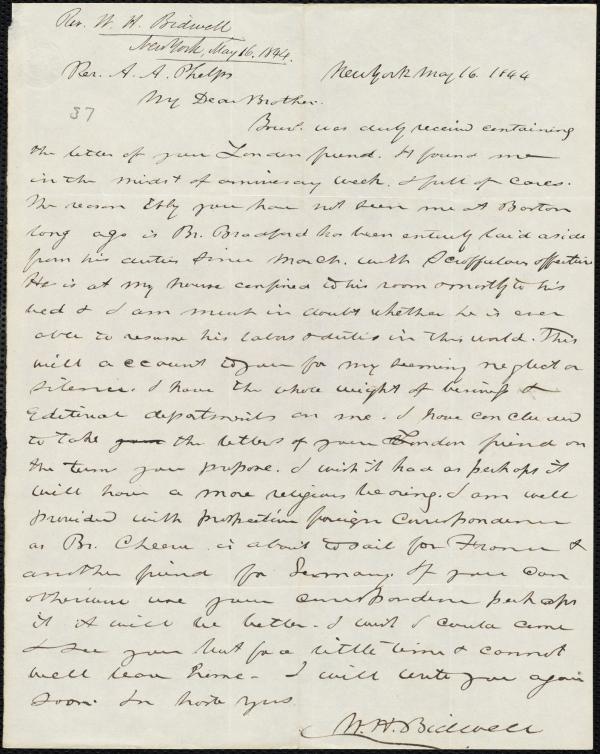 Rev. W. H. Bidwell
New York, May 16. 1844.
Rev. A. A. Phelps New York May 16. 1844
My Dear Brother.
37
was duly received containing
the letter of your London friend. It found me
in the midst of anniversary week & full of cares.
The reason why you have not seen me at Boston
long ago is Br. Bradford has been entirely laid aside
from his duties since March. with Scroffulous affection
He is at my house confined to his room & mostly to his
bed & I am much in doubt whether he is ever
able to resume his labors & duties in this world. This
will account to you for my seeming neglect or
silence. I have the whole weight of business &
Editorial departments on me. I have concluded
to take the letters of your London friend on
the terms you propose. I wish it had as perhaps it
will have a more religious bearing. I am well
provided with prospective foreign correspondence
as Br. Cheever is about to sail for France &
another friend for Germany. If you can
otherwise use your correspondence perhaps
it will be better. I wish I could come
& see you but for a little time & cannot
well leave home. I will write you again
soon. In haste yrs
W. H. Bidwell